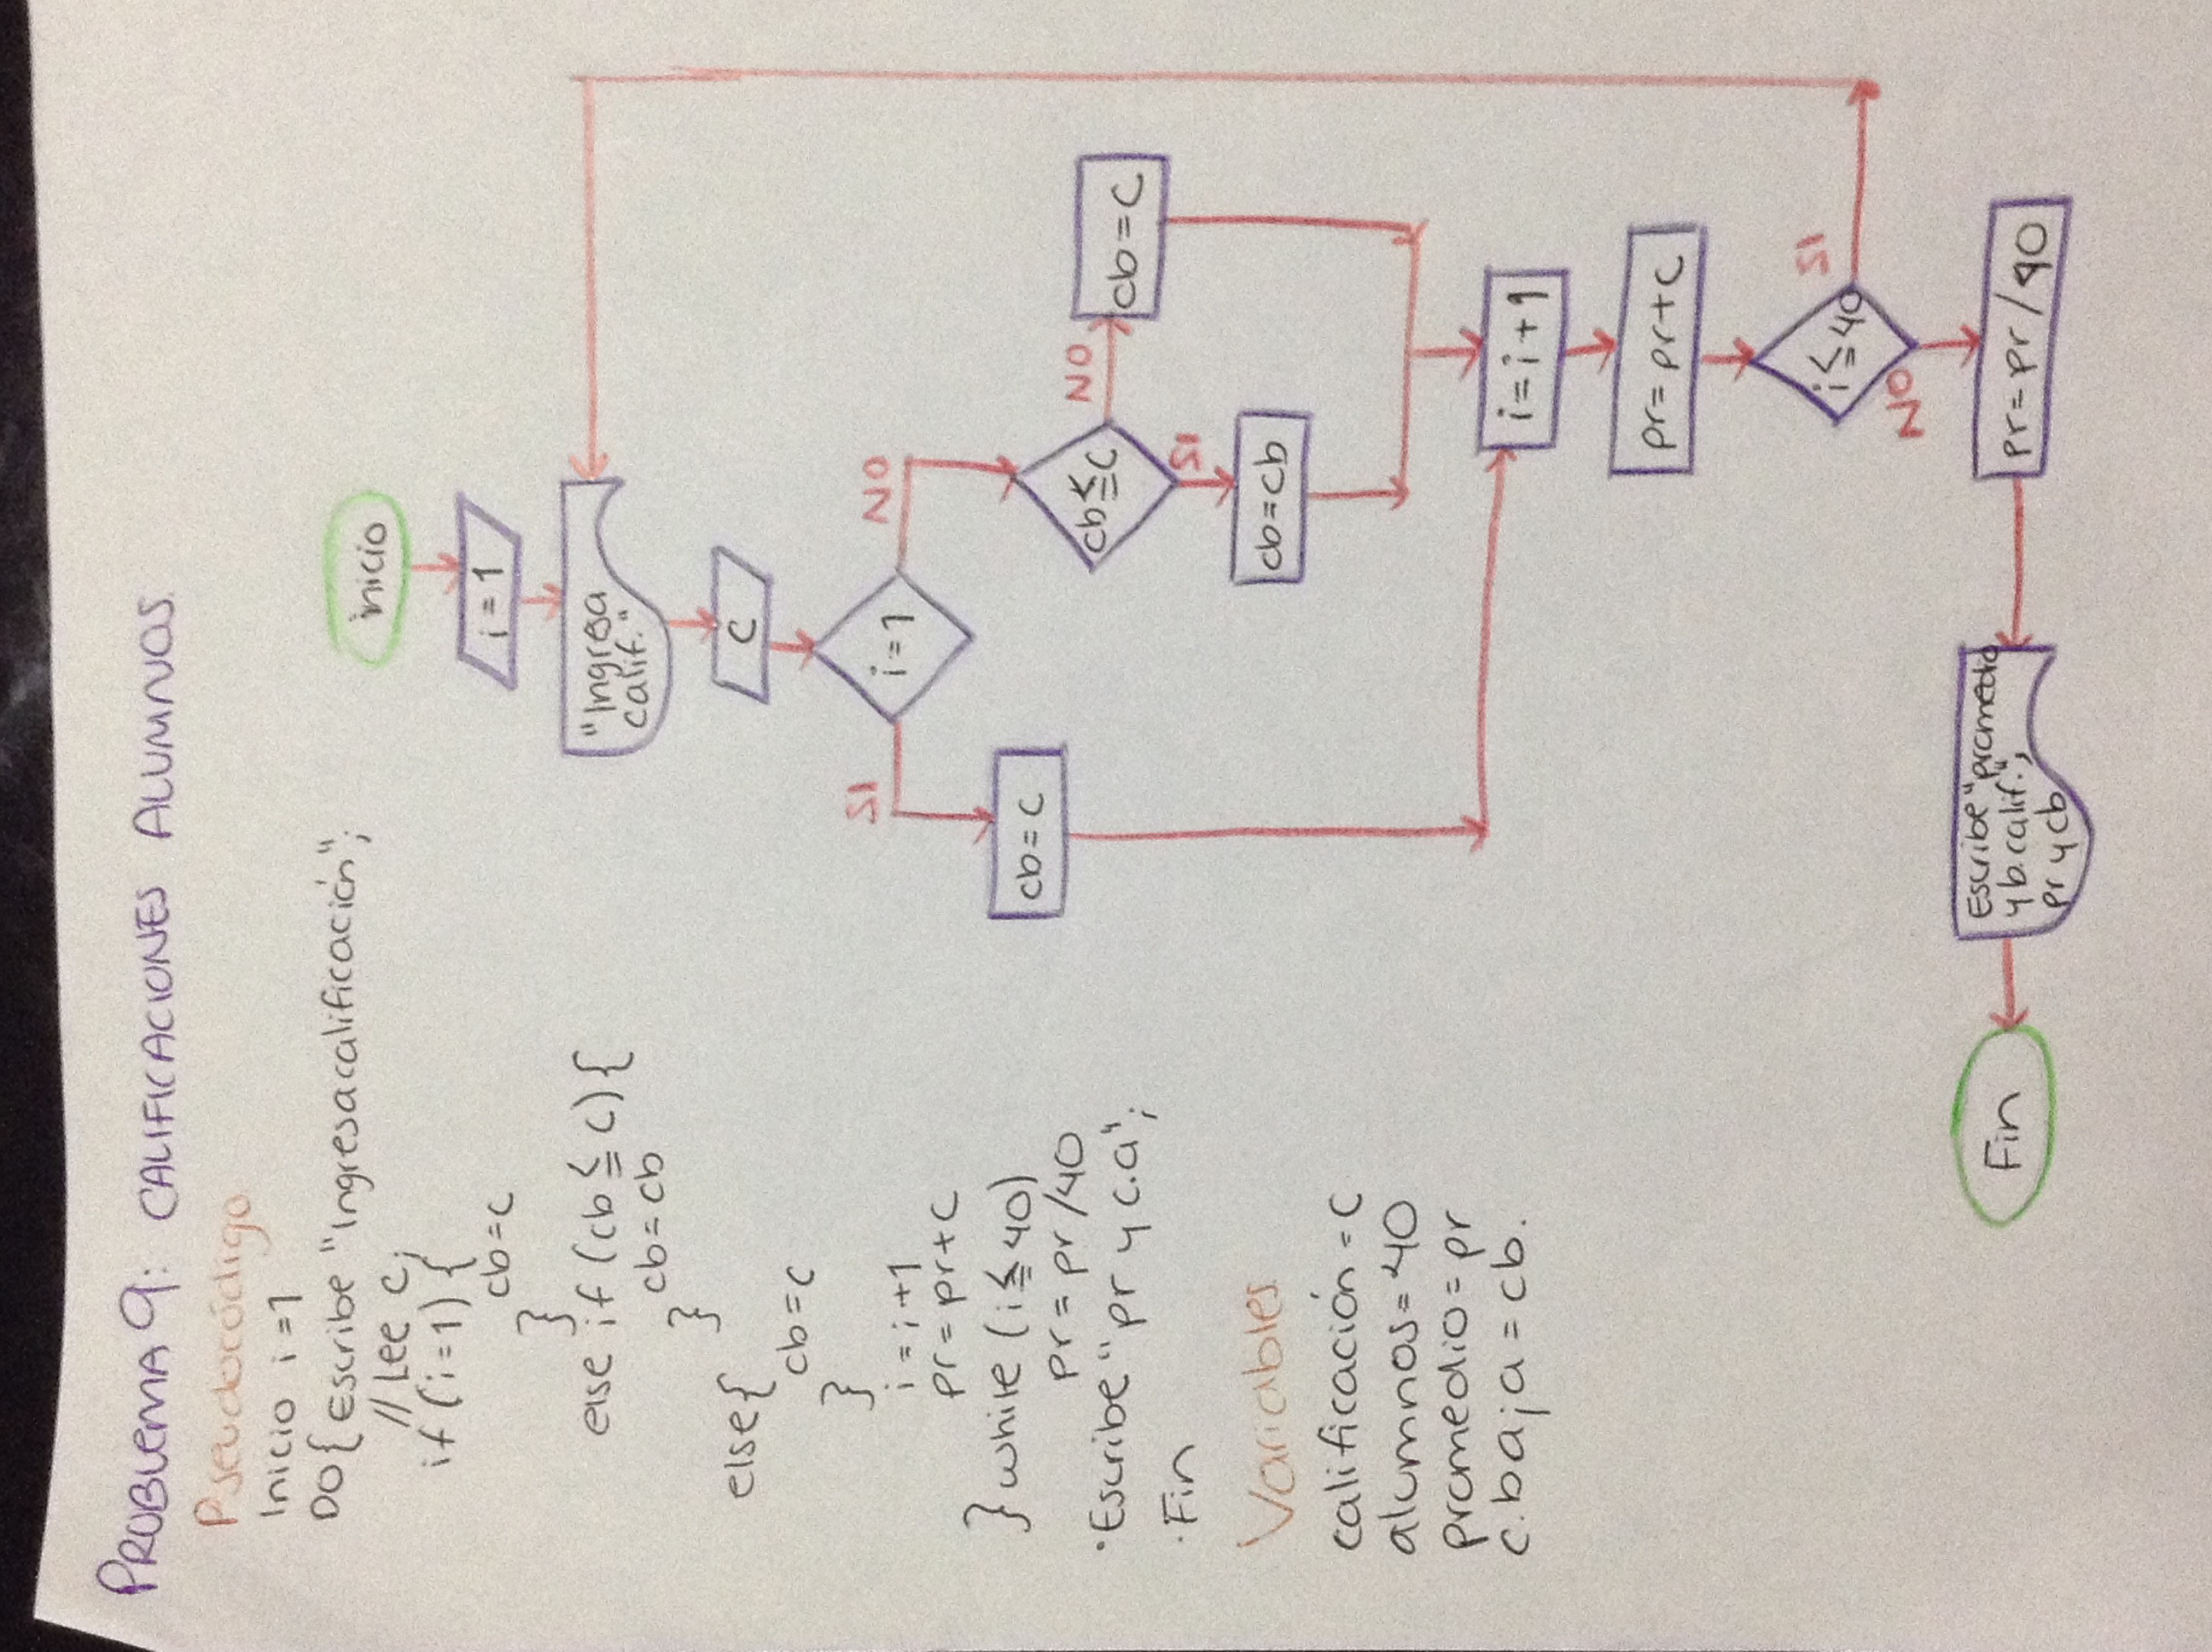 PROBLEMA 9: CALIFICACIONES ALUMNOS.
Pseudocódigo
Inicio i=1
DO{ Escribe "Ingresa calificación";
// Lee c;
if (i=1) {
cb=c
}
else if (cb≦c){
cb=cb
}
else{
cb=c
}
i=i+1
pr=pr+c
} while (i≦40)
pr=pr/40
·Escribe "pr y c.a";
·Fin
Variables
calificación=c
alumnos=40
promedio=pr
c.baja=cb.
inicio
i=1
"Ingresa
calif."
c
i=1
SI
NO
cb=c
cb≦c
NO
cb=c
SI
cb=cb
i=i+1
pr=pr+c
i≦40
SI
NO
pr=pr/40
Escribe "promedio
y b.calif.",
pr y cb
Fin